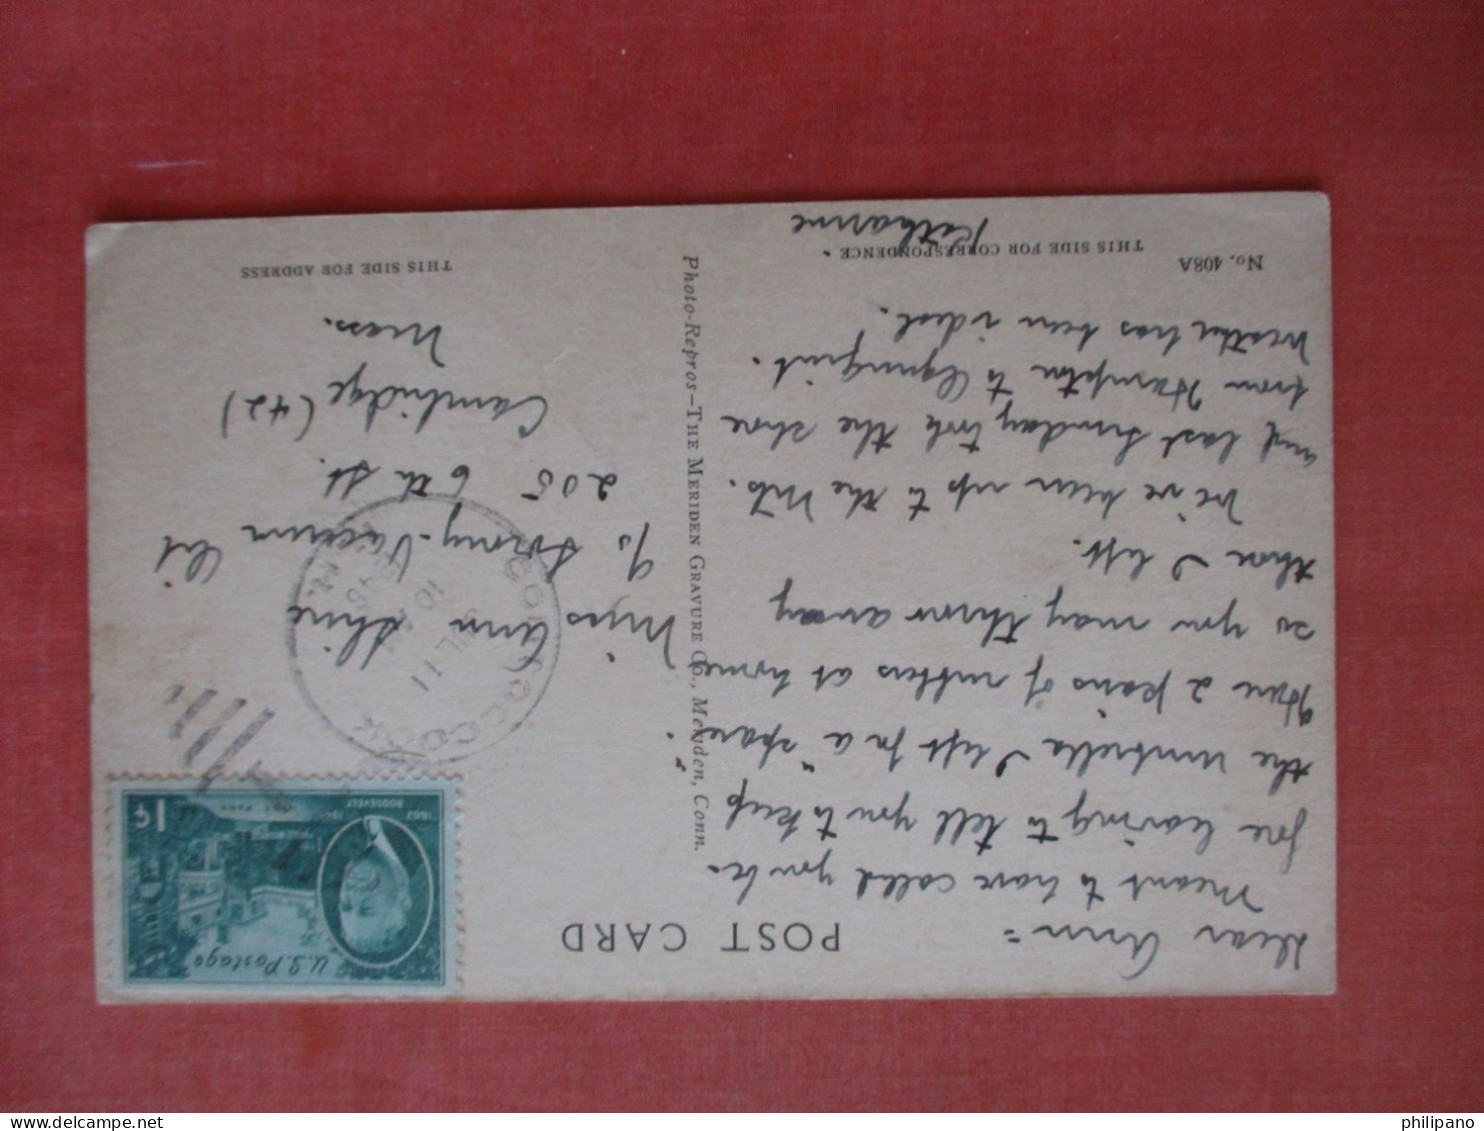 POST CARD
Dear Ann =
Meant to have called you be-
fore leaving to tell you to keep
the umbrella I left for a "spare"
Have 2 pairs of rubbers at home
so you may throw away
those I left.
We've been up to the Mts.
and last Sunday took the shore
from Hampton to Ogunquit.
Weather has been ideal.
Katharine
No. 408A
THIS SIDE FOR CORRESPONDENCE
Photo-Repros—THE MERIDEN GRAVURE CO., Meriden, Conn.
U.S. Postage
1¢
1882 1945
ROOSEVELT
HYDE PARK
CONTOOCOOK
JUL 11
10 AM
Miss Ann Shine
c/o Socony-Vacuum
205 6th St.
Cambridge (42)
Mass.
THIS SIDE FOR ADDRESS
philipano